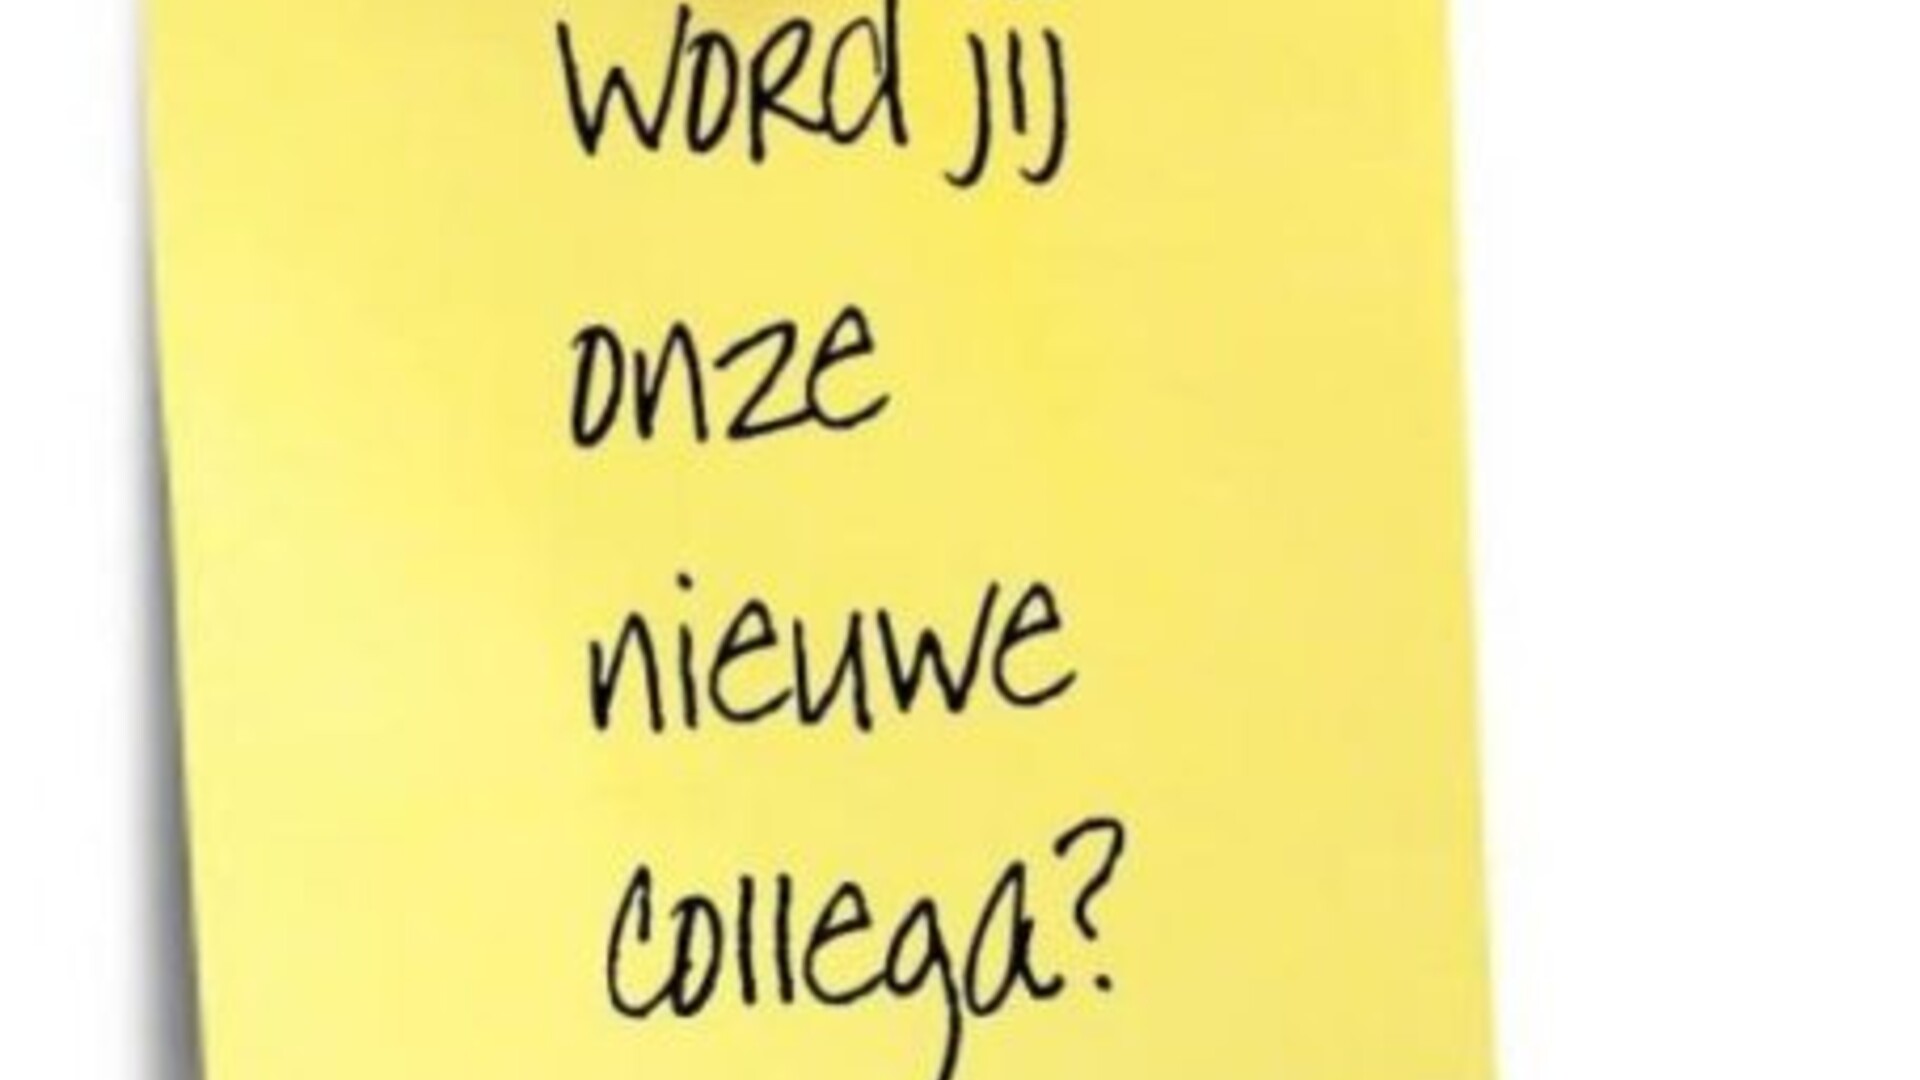 Word jij
onze
nieuwe
collega?